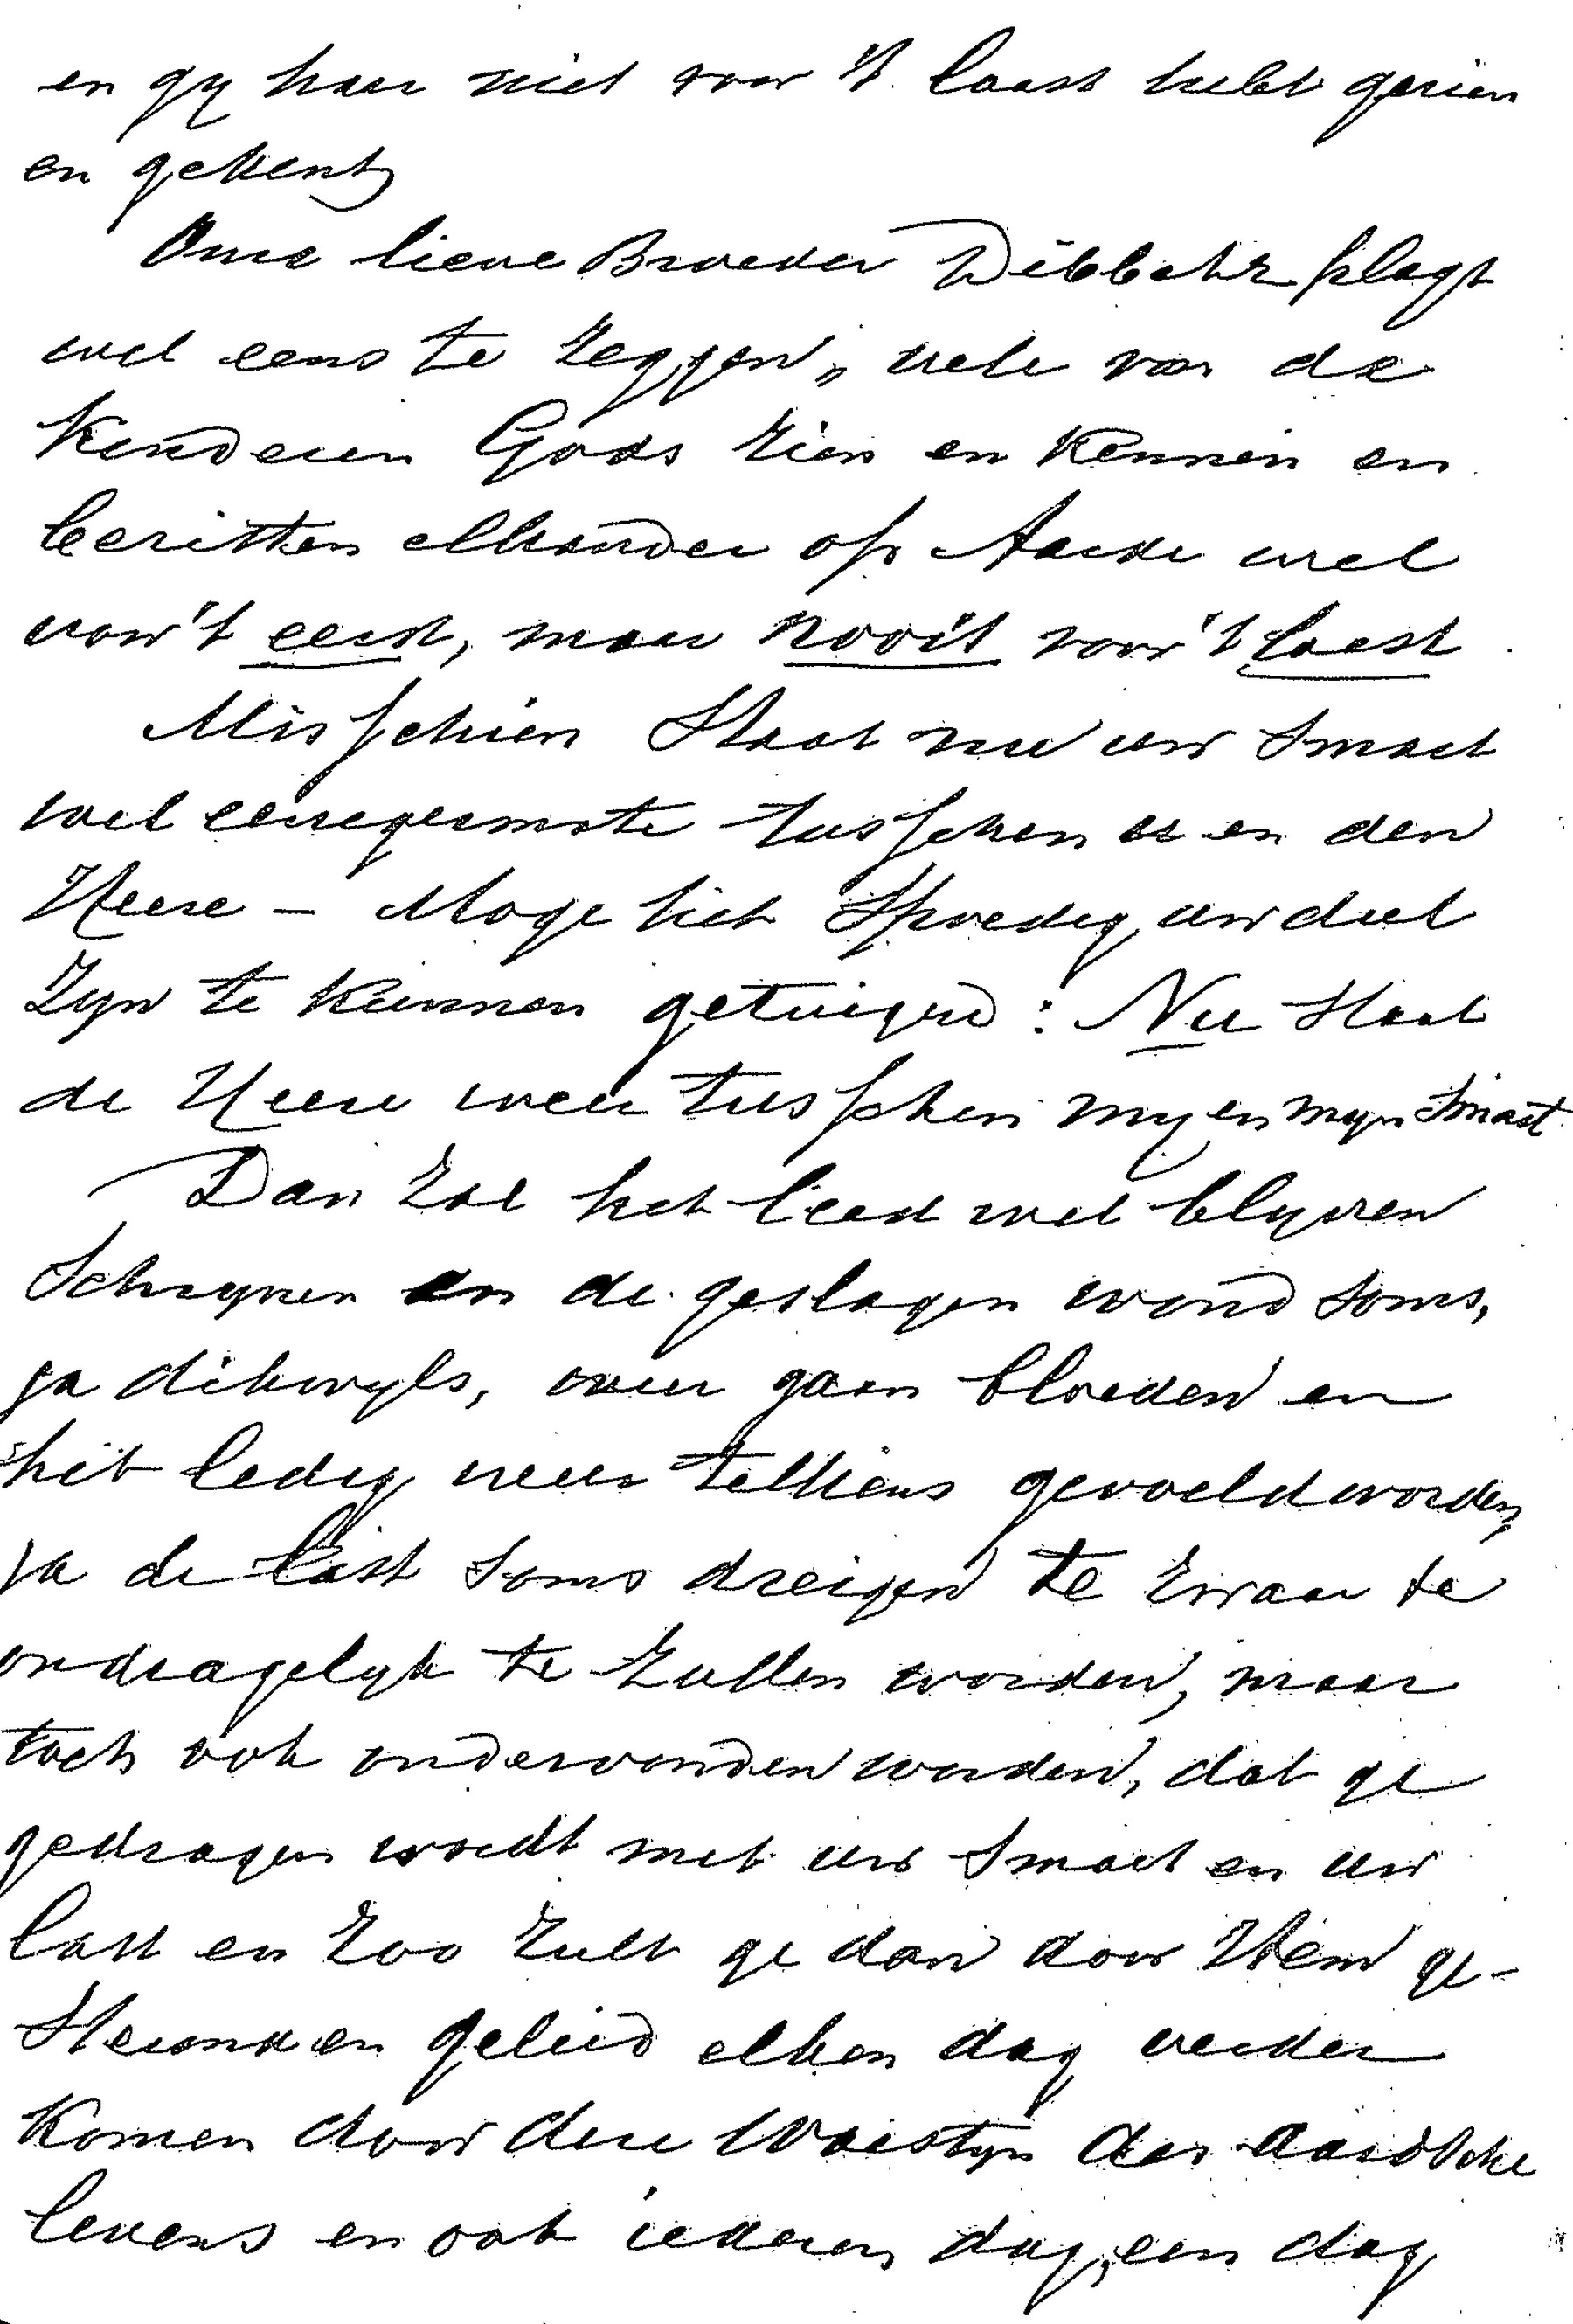 en gy haar niet voor 't laast hebt gezien
en gekent,
Onze lieve Broeder Dibbetz plagt
wel eens te zeggen „ vele van de
Kinderen Gods zien en kennen en
bezitten elkander op Aarde wel
voor't eerst, maar nooit voor 't laast
Misschien Staat nu uw Smart
wel eenigermate tusschen u en den
Heere – Moge het Spoedig uw deel
Zyn te kunnen getuigen : Nu Staat
de Heere weer tusschen my en myn Smart
Dan zal het leed wel blyven
Schrynen en de geslagen wond soms,
ja dikwyls, weer gaan bloeden en
het ledig weer telkens gevoeld worden,
ja de last soms dreigen te zwaar te
ondragelyk te zullen worden, maar
toch ook ondervonden worden, dat ge
gedragen wordt met uw Smart en uw
last en zoo zult ge dan door Hem ge-
Steund en geleid elken dag verder
Komen door deze Woestyn des aardsche
levens en ook iederen dag, een dag